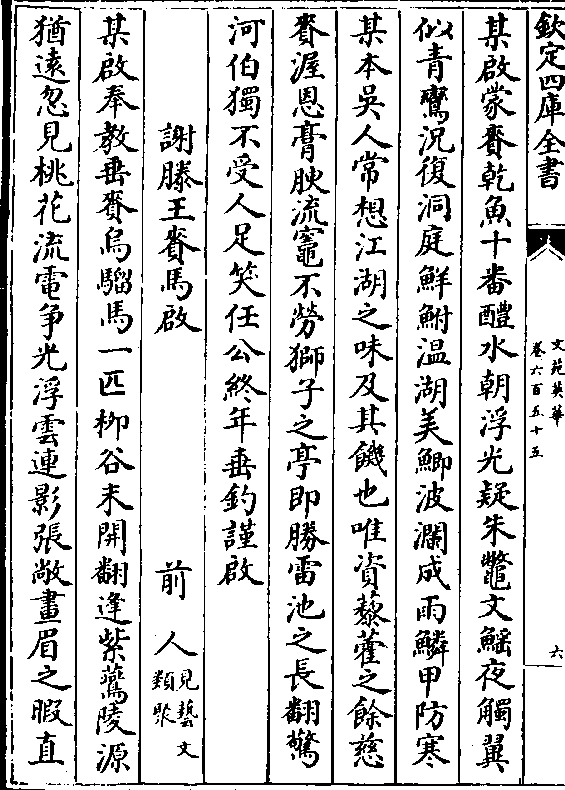 欽定四庫全書
文苑英華
卷六百五十五
六
某啟蒙賚乾魚十番醴水朝浮光疑朱鼈文鰩夜觸翼
似青鸞況復洞庭鮮鮒温湖美鯽波瀾成雨鱗甲防寒
某本吳人常想江湖之味及其饑也唯資藜藿之餘慈
賚渥恩膏腴流竈不勞獅子之亭即勝雷池之長翻驚
河伯獨不受人足笑任公終年垂釣謹啟
謝滕王賚馬啟 前人見藝文類聚
某啟奉教垂賚烏騮馬一匹柳谷未開翻逢紫鷰陵源
猶遠忽見桃花流電争光浮雲連影張敞畫眉之暇直